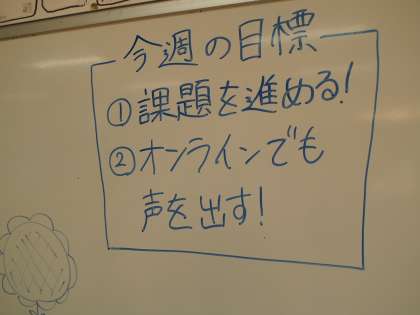 今週の目標
①課題を進める!
②オンラインでも
声を出す!